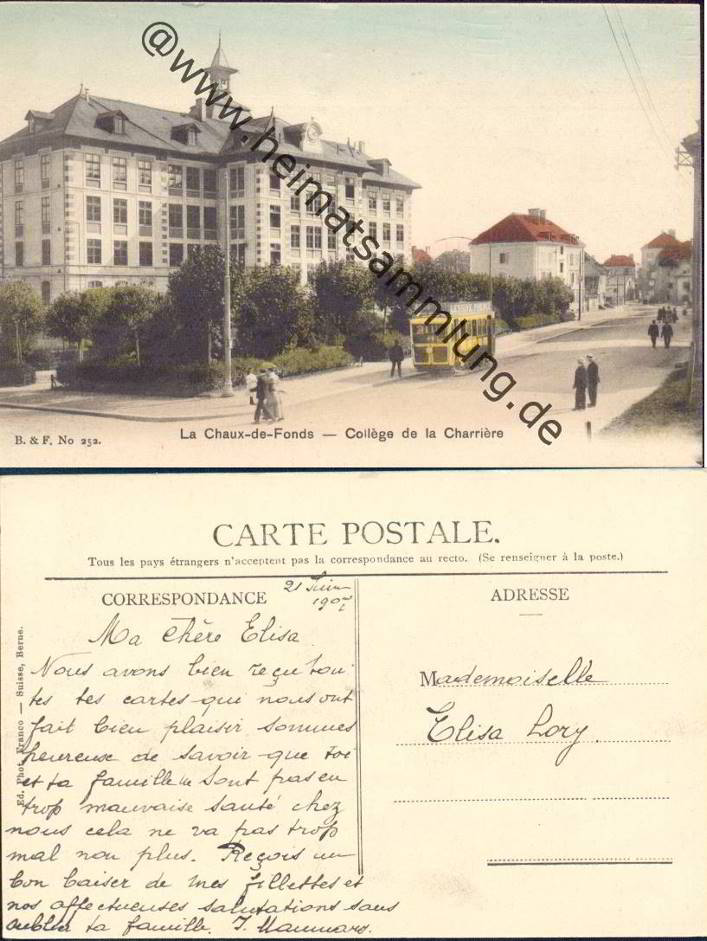 @www.heimatsammlung.de
B. & F. No 252.
La Chaux-de-Fonds — Collège de la Charrière
CARTE POSTALE.
Tous les pays étrangers n'acceptent pas la correspondance au recto. (Se renseigner à la poste.)
CORRESPONDANCE
21 Juin
1907
Ma chère Elisa
Nous avons bien reçu tou-
tes tes cartes qui nous ont
fait bien plaisir sommes
heureuse de savoir que toi
et ta famille sont pas en
trop mauvaise santé chez
nous cela ne va pas trop
mal non plus. Reçois un
bon baiser de mes fillettes et
nos affectueuses salutations sans
oublier ta famille. J.
Ed. Phot. Franco — Suisse, Berne.
ADRESSE
Mademoiselle
Elisa Lory.